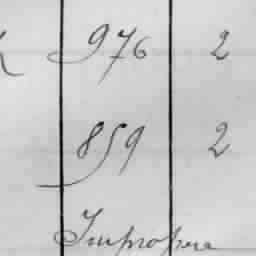 976 2
859 2